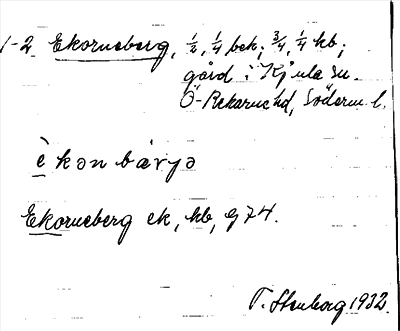 1-2 Ekorneberg, 1/2, 1/4 bek; 3/4, 1/4 kb;
gård i Kjula sn.
Ö-Rekarne hd, Söderm. l.
è kon bàrjə
Ekorneberg ek, kb, g 74.
T. Stenborg 1932